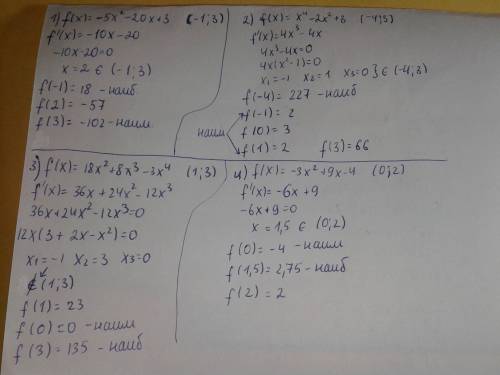 1) f(x) = -5x² - 20x + 3 (-1; 3)
f'(x) = -10x - 20
-10x - 20 = 0
x = 2 ∈ (-1; 3)
f(-1) = 18 - наиб
f(2) = -57
f(3) = -102 - наим
2) f(x) = x⁴ - 2x² + 3 (-4; 3)
f'(x) = 4x³ - 4x
4x³ - 4x = 0
4x(x² - 1) = 0
x₁ = -1 x₂ = 1 x₃ = 0 } ∈ (-4; 3)
f(-4) = 227 - наиб
f(-1) = 2
наим f(0) = 3
f(1) = 2 f(3) = 66
3) f(x) = 18x² + 8x³ - 3x⁴ (1; 3)
f'(x) = 36x + 24x² - 12x³
36x + 24x² - 12x³ = 0
12x(3 + 2x - x²) = 0
x₁ = -1 x₂ = 3 x₃ = 0
∉ (1; 3)
f(1) = 23
f(0) = 0 - наим
f(3) = 135 - наиб
4) f(x) = -3x² + 9x - 4 (0; 2)
f'(x) = -6x + 9
-6x + 9 = 0
x = 1,5 ∈ (0; 2)
f(0) = -4 - наим
f(1,5) = 2,75 - наиб
f(2) = 2